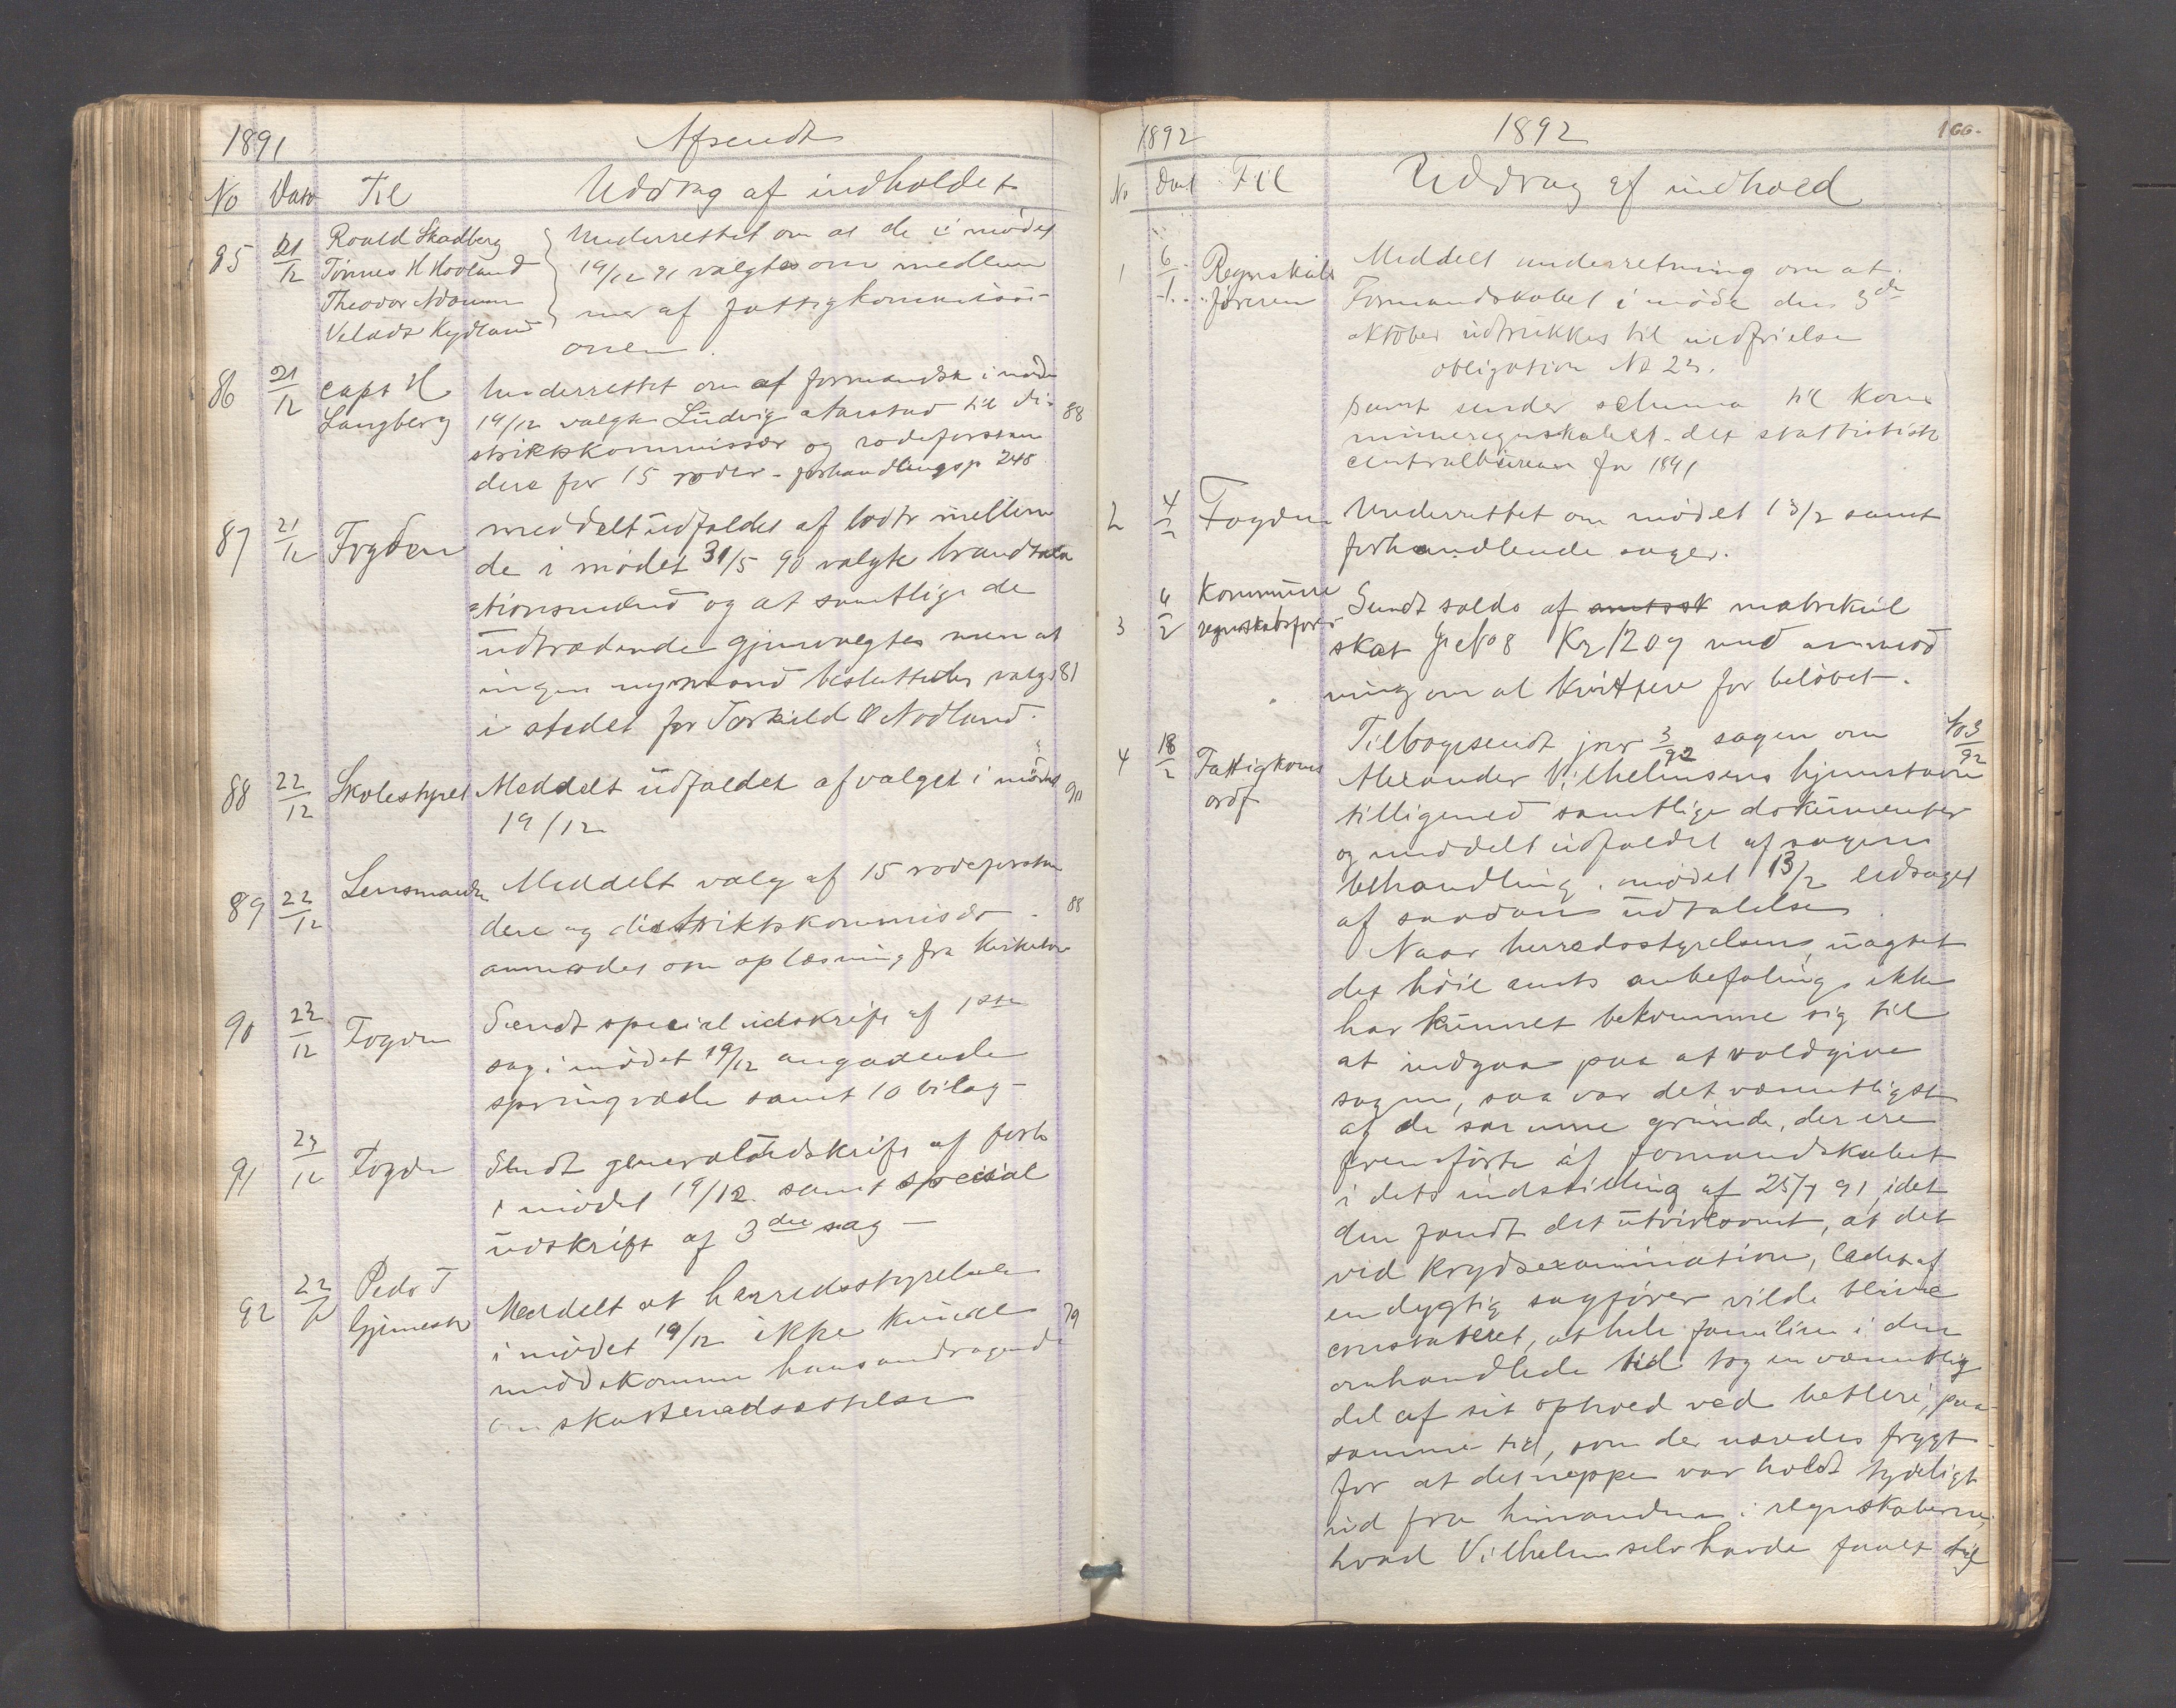 1891 Afsendt
No Dato Til Uddrag af indholdet
85 21/12 Roald Skadberg Underrettet om at de i mødet
Tønnes H Hovland 19/12 91 valgtes om medlem
Theodor Adamsen mer af fattigkommissi
Veladt Kydland onen.
86 21/12 Capt H Underrettet om at formandsk i møde
Langberg 19/12 valgte Ludvig Aarstad til di- 88
striktskommissær og rodeforstan
dere for 15 roder - forhandlingsp 248
87 21/12 Fogden meddelt udfaldet af lodtr mellem
de i mødet 31/5 90 valgte brandtaxa
tionsmænd og at samtlige de
udtrædende gjenvalgtes men at
ingen ny mand besluttedes valgt 81
i stedet for Torkild O Nodland.
88 22/12 Skolestyret Meddelt udfaldet af valget i mødet 90
19/12
89 22/12 Lensmanden Meddelt valg af 15 rodeforstan
dere og distriktskommissær - 88
anmodes om oplæsning fra kirkebk
90 22/12 Fogden Sendt special udskrift af 1ste
sag i mødet 19/12 angaaende
springvæde samt 10 bilag -
91 23/12 Fogden Sendt generaludskrift af forh
i mødet 19/12 samt special
udskrift af 3die sag -
92 22/12 Peder T Meddelt at herredsstyrelsen
Gjimestr i mødet 19/12 ikke kunde 79
imødekomme hans andragende
om skattenedsættelse
1892 1892 166.
No Dat Til Uddrag af indhold
1 6/1 Regnskabs Meddelt underretning om at
føreren Formandskabet i møde den 3de
oktober udtrukkes til indfrielse
obligation No 23.
samt sender schema til kom
muneregnskabet - det stattistiske
centralbureau for 1891
2 4/2 Fogden Underrettet om mødet 13/2 samt
forhandlende sager.
3 6/2 Kommune Sendt saldo af amtssk matrikul
regnskabsfører skat No 8 Kr 1209 med anmod
ning om at kvittere for beløbet.
4 18/2 Fattigkoms Tilbagesendt jnr 3/92 sagen om No 3/92
ordf Alexander Vilhelmsens hjemstavn
tilligemed samtlige dokumenter
og meddelt udfaldet af sagens
behandling i mødet 13/2 ledsaget
af saadan udtalelse
Naar herredsstyrelsen, uagtet
det höie amts anbefaling, ikke
har kunnet bekvemme sig til
at indgaa paa at voldgive
sagen, saa var det væsentligst
af de samme grunde, der ere
fremførte af formandskabet
i dets indstilling af 25/7 91, idet
den fandt det utvivlsomt, at det
vid krydsexamination, ledet af
en dygtig sagfører vilde blive
constateret, at hele familien i den
omhandlede tid tog en væsentlig
del af sit ophold ved betleri, paa
samme tid, som der næredes frygt
for at det neppe var holdt tydeligt
ud fra hinanden i regnskaberne,
hvad Vilhelm selv havde faaet til